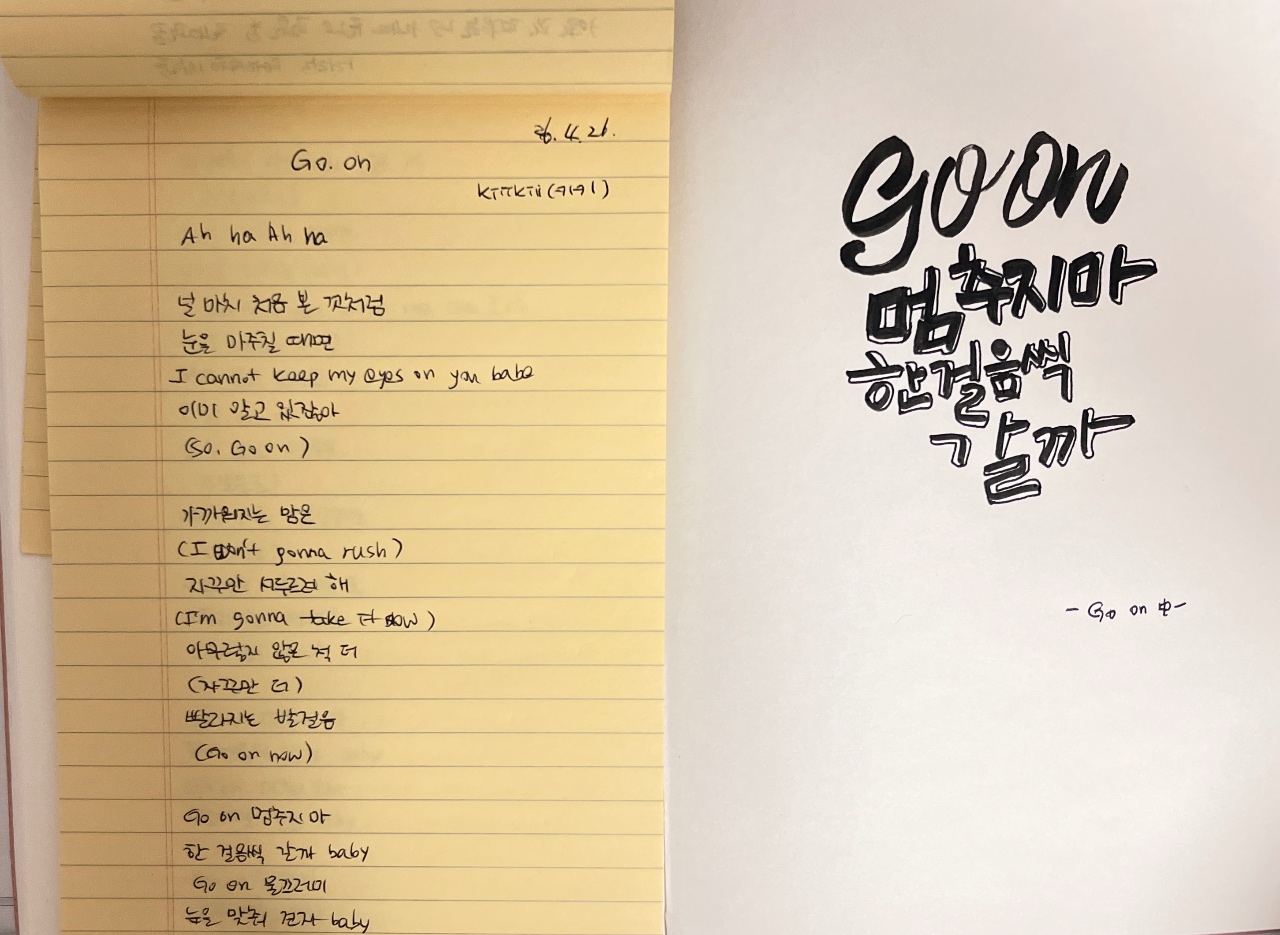 26.4.21.
Go. on
KiiiKiii (키키)
Ah ha Ah ha
널 마치 처음 본 것처럼
눈을 마주칠 때면
I cannot keep my eyes on you babe
이미 알고 있잖아
(So, Go on)
가까워지는 맘은
(I don't gonna rush)
자꾸만 서두르려 해
(I'm gonna take it slow)
아무렇지 않은 척 더
(자꾸만 더)
빨라지는 발걸음
(Go on now)
Go on 멈추지 마
한 걸음씩 갈까 baby
Go on 물끄러미
눈을 맞춰 걷자 baby
Go on
멈추지마
한걸음씩
갈까
- Go on 中 -